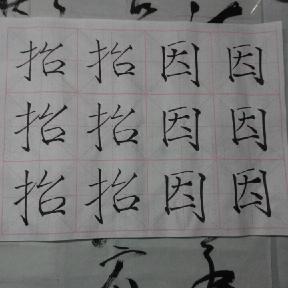 抬抬因因
抬抬因因
抬抬因因